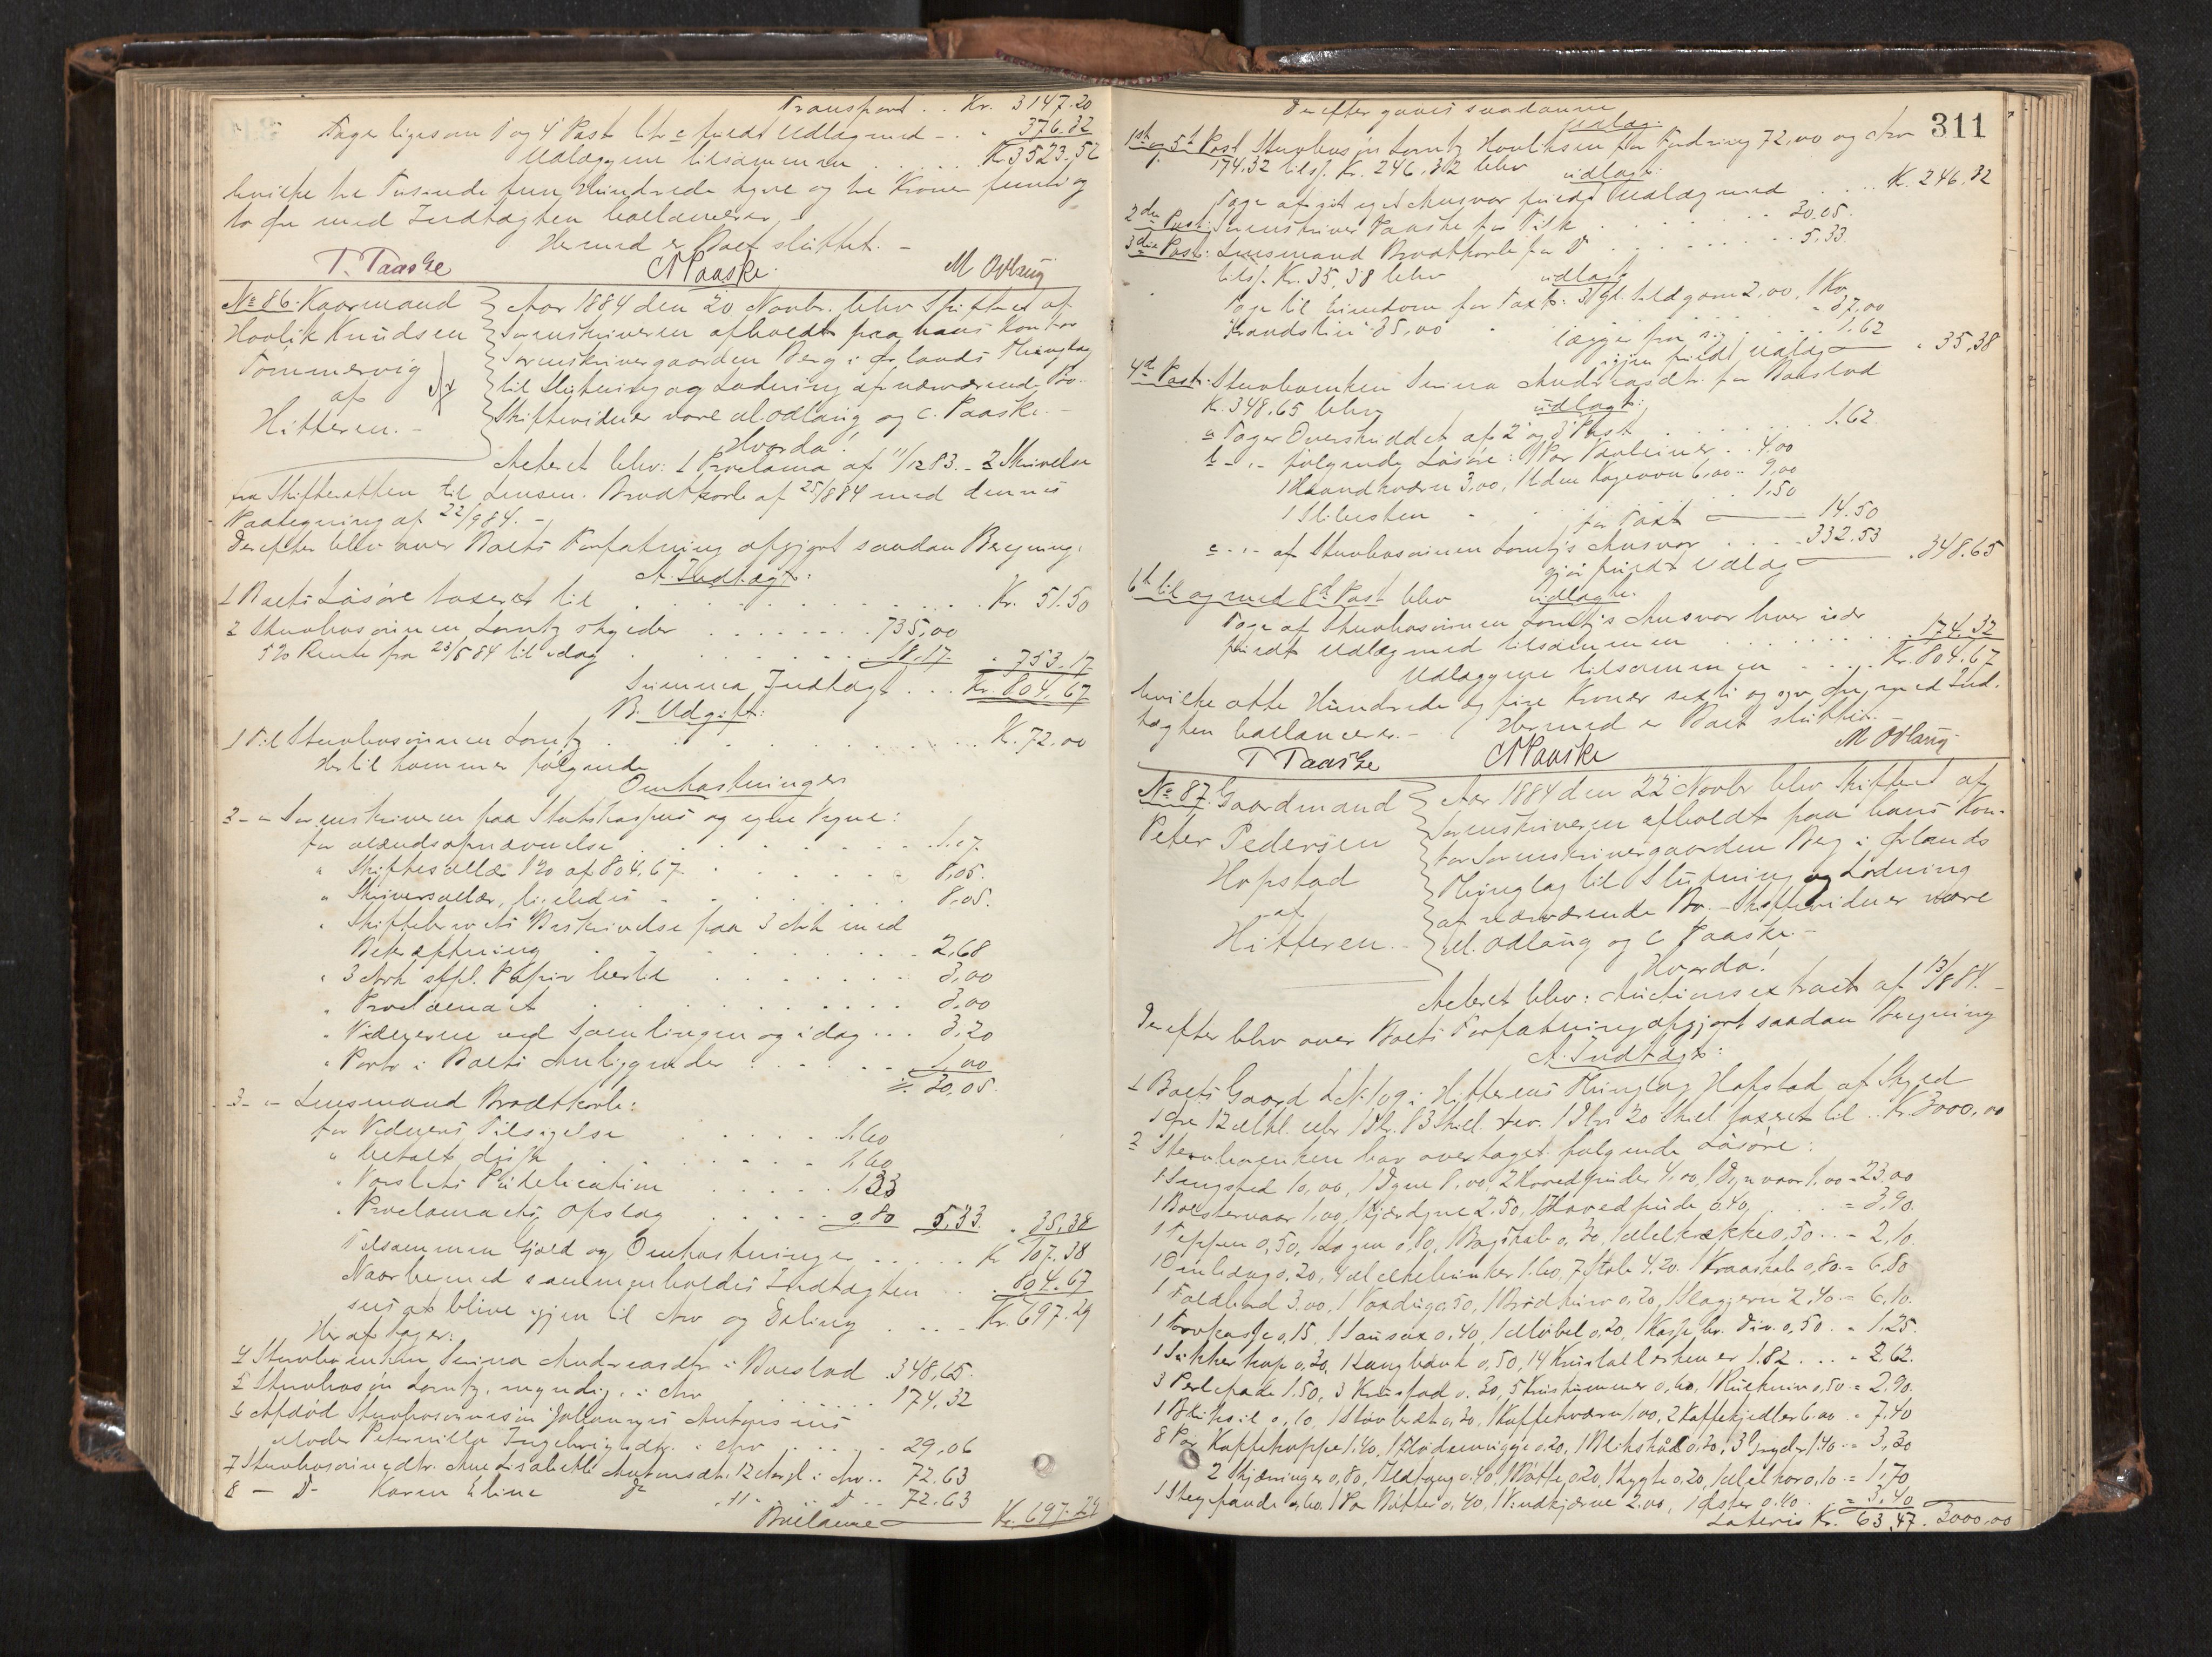 Transport . . Kr. 3147.20
Tager ligesom 1 og 4 Post litr c fuldt Udlæg med - . " 376.32
Udlæggene tilsammen . . . . . K 3523,52
hvilke tre Tusinde fem Hundrede tyve og tre Kroner femti og
to Øre med Indtægten balancerer. -
Hermed er Boet sluttet. -
T. Paaske C Paaske. M Odlaug
No 86. Kaarmand
Hovlik Knudsen
Tømmervig
af
Hitteren. -
Aar 1884 den 20 Novbr. blev Skifteret af
Sorenskriveren afholdt paa hans Kontor
Sorenskrivergaarden Berg i Ørlands Thinglag
til Slutning og Lodning af nærværende Bo. -
Skiftevidner vare M. Odlaug og C. Paaske. -
Hvorda!
Acteret blev: 1 Proclama af 11/12 83. - 2 Skrivelse
fra Skifteretten til Lensm. Brodtkorb af 25/8 84 med dennes
Paategning af 22/9 84. -
Derefter blev over Boets Forfatning opgjort saadan Beregning:
A. Indtægt:
1 Boets Løsøre taxeret til . . . . . . Kr. 51.50
2 Stervbosønnen Lorntz skylder . . . . . 735,00
5% Rente fra 23/5 84 til idag . . . . 18.17 " 753.17
Summa Indtægt . . . Kr. 804,67
B. Udgift:
1 Til Stervbosønnen Lorntz . . . . . . K. 72.00
Hertil kommer følgende
Omkostninger
2 - " Sorenskriveren paa Statskassens og egne Vegne:
for
" Skiftesallær 1% af 804,67 . . . . 8,05.
" Skriversallær, ligeledes . . . . 8,05.
" Skiftebrevets Beskrivelse paa 3 Ark med
Bekræftning . . . . 2,68
" 3 Ark stpl. Papir hertil . . . . 3,00
" Proclamaet . . . . 3,00
" Vidnerne ved Samlingen og idag . . . 3,20
" Porto i Boets Anliggender . . . . 1,00
30,05.
3 - " Lensmand Brodtkorb:
for Vidners Tilsigelse . . . . 1,60
" betalt disse . . . . 1,60
" Varslets Publication . . . . 1,33
" Proclamaets Opslag . . . . 0.80 5,33. " 35,38
Tilsammen Gjæld og Omkostninger . . . . Kr 107.38
Naar hermed sammenholdes Indtægten . . 804.67
sees at blive igjen til Arv og Deling . . . Kr. 697.29
Heraf tager:
4 Stervboenken Serina Andreasdtr i Boeslod 348,65.
5 Stervbosøn Lorntz, myndig, i Arv . . . . 174,32
6 Afdød Stervbosønnesøn Johannes Antonsens
Moder Peternilla Ingebrigtsdtr. i Arv . . . . 29.06
7 Stervbosønnedtr. Ane Lisabeth Antonsdtr. 12 Aar gl. i Arv . . 72.63
8 - D - Karen Eline do " 11 " . . D . . 72.63
Balance Kr. 697.29
311
Derefter gaves saadanne
Udlæg:
1st og 5t Post Stervbosøn Lorntz Hovliksen for Fordring 72,00 og Arv
174.32 tils. Kr. 246.32 blev udlagt:
Tage af sit eget Ansvar fuldt Udlæg med . . . K. 246,32
2den Post: Sorenskriver Paaske for Tilk . . . . 30.05.
3die Post: Lensmand Brodtkorb for D . . . . 5,33
tils. Kr. 35,38 blev udlagt
Tage til Eiendom for Taxt: 2,00, 1 Ko
Randslin 35,00 . . 37,00
lægger fra sig . . . . 1.62
igjen fuldt Udlæg " 35,38
4d Post: Stervboenken Serina Andreasdtr. for Boeslod
K. 348,65 blev udlagt:
a Tager Overskuddet af 2 og 3 Post . . . . 1.62
b - " - følgende Løsøre: 1 Par . . 4.00
1 Haandkværn 3,00, 1 liden Kageovn 6,00 . . 9,00
1 Slibesten . . . . 1.50
for Taxt 14.50
c - " - af Stervbosønnen Lorntz's Ansvar . . . 332.53
gjør fuldt Udlæg " 348.65
6t til og med 8d Post blev udlagt:
Tage af Stervbosønnen Lorntz's Ansvar hver især
fuldt Udlæg med tilsammen . . . . 174.32
Udlæggene tilsammen . . . Kr. 804.67
hvilke otte Hundrede og fire Kroner seksti og syv Øre med Ind-
tægten balancerer. - Hermed er Boet sluttet. -
T Paaske C Paaske M Odlaug
No 87. Gaardmand
Peter Pedersen
Hopstad
af
Hitteren. -
Aar 1884 den 22 Novbr blev Skifteret af
Sorenskriveren afholdt paa hans Kon-
tor Sorenskrivergaarden Berg i Ørlands
Thinglag til Slutning og Lodning
af nærværende Bo. - Skiftevidner vare
M. Odlaug og C Paaske. -
Hvorda!
Acteret blev: Auctionsextract af 13/8 84. -
Derefter blev over Boets Forfatning opgjort saadan Beregning
A. Indtægt:
1 Boets Gaard L. No 109 i Hitterens Thinglag Hopstad af Skyld
1 Øre 12 Mkl. eller 1 Dlr. 3 Skil. rev. 1 Dlr 20 Skil taxeret til . . Kr. 3000,00
2 Stervboenken har overtaget følgende Løsøre:
1 Sengsted 10,00, 1 Dyne 8,00, 2 Hovedpuder 4,00, 1 Dynvaar 1.00 = 23,00
1 Bolstervaar 1,00, 1 Fjærdyne 2.50, 1 Hovedpude 0.40, . . = 3,90.
1 Teppen 0,50, 1 Lagen 0,80, 1 Bogskab 0,30, 1 0.50 . . = 2,10.
1 0.20, 4 Melkebunker 1.60, 7 Stole 4.20. 1 0,80 = 6.80
1 Foldbord 3.00, 1 Voxdug 0,50, 1 0,20, 1 2,40 = 6,10.
1 0,15, 1 Sausax 0.40, 1 0,20, 1 Kasse hv. Div. 0,50 . = 1,25.
1 Sukkerkop 0,30, 1 Langbænk 0,50, 14 1.82 . . . = 2,62.
3 1.50, 3 0.30, 5 0,60, 1 0,50 = 2.90.
1 0,10, 1 0,30, 1 Kaffekværn 1,00, 2 Kaffekjedler 6.00 = 7,40
8 Par Kaffekoppe 1.40, 1 Flødemugge 0.20, 1 0.30, 3 Gryder 1.40 = 3,30
2 0,80, 1 Ildtang 0.40, 1 Bøtte 0.20, 1 Lygte 0.20, 1 0,10 = 1,70
1 Stegpande 0,60. 1 Par Bøtter 0,40, 1 2.00, 1 Øster 0.40 . = 3,40
Lateris Kr. 63,47. 3000,00